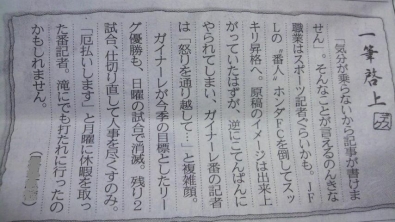 一筆啓上
デスク
「気分が乗らないから記事が書けま
せん」。そんなことが言えるのんきな
職業はスポーツ記者ぐらいかも。JF
Lの〝番人〟ホンダFCを倒してスッ
キリ昇格へ。原稿のイメージは出来上
がっていたはずが、逆にこてんぱんに
やられてしまい、ガイナーレ番の記者
は「怒りを通り越して…」と複雑顔。
ガイナーレが今季の目標としたリー
グ優勝も、日曜の試合で消滅。残り2
試合、仕切り直して人事を尽くすのみ。
「厄払いします」と月曜に休暇を取っ
た番記者。滝にでも打たれに行ったの
かもしれません。